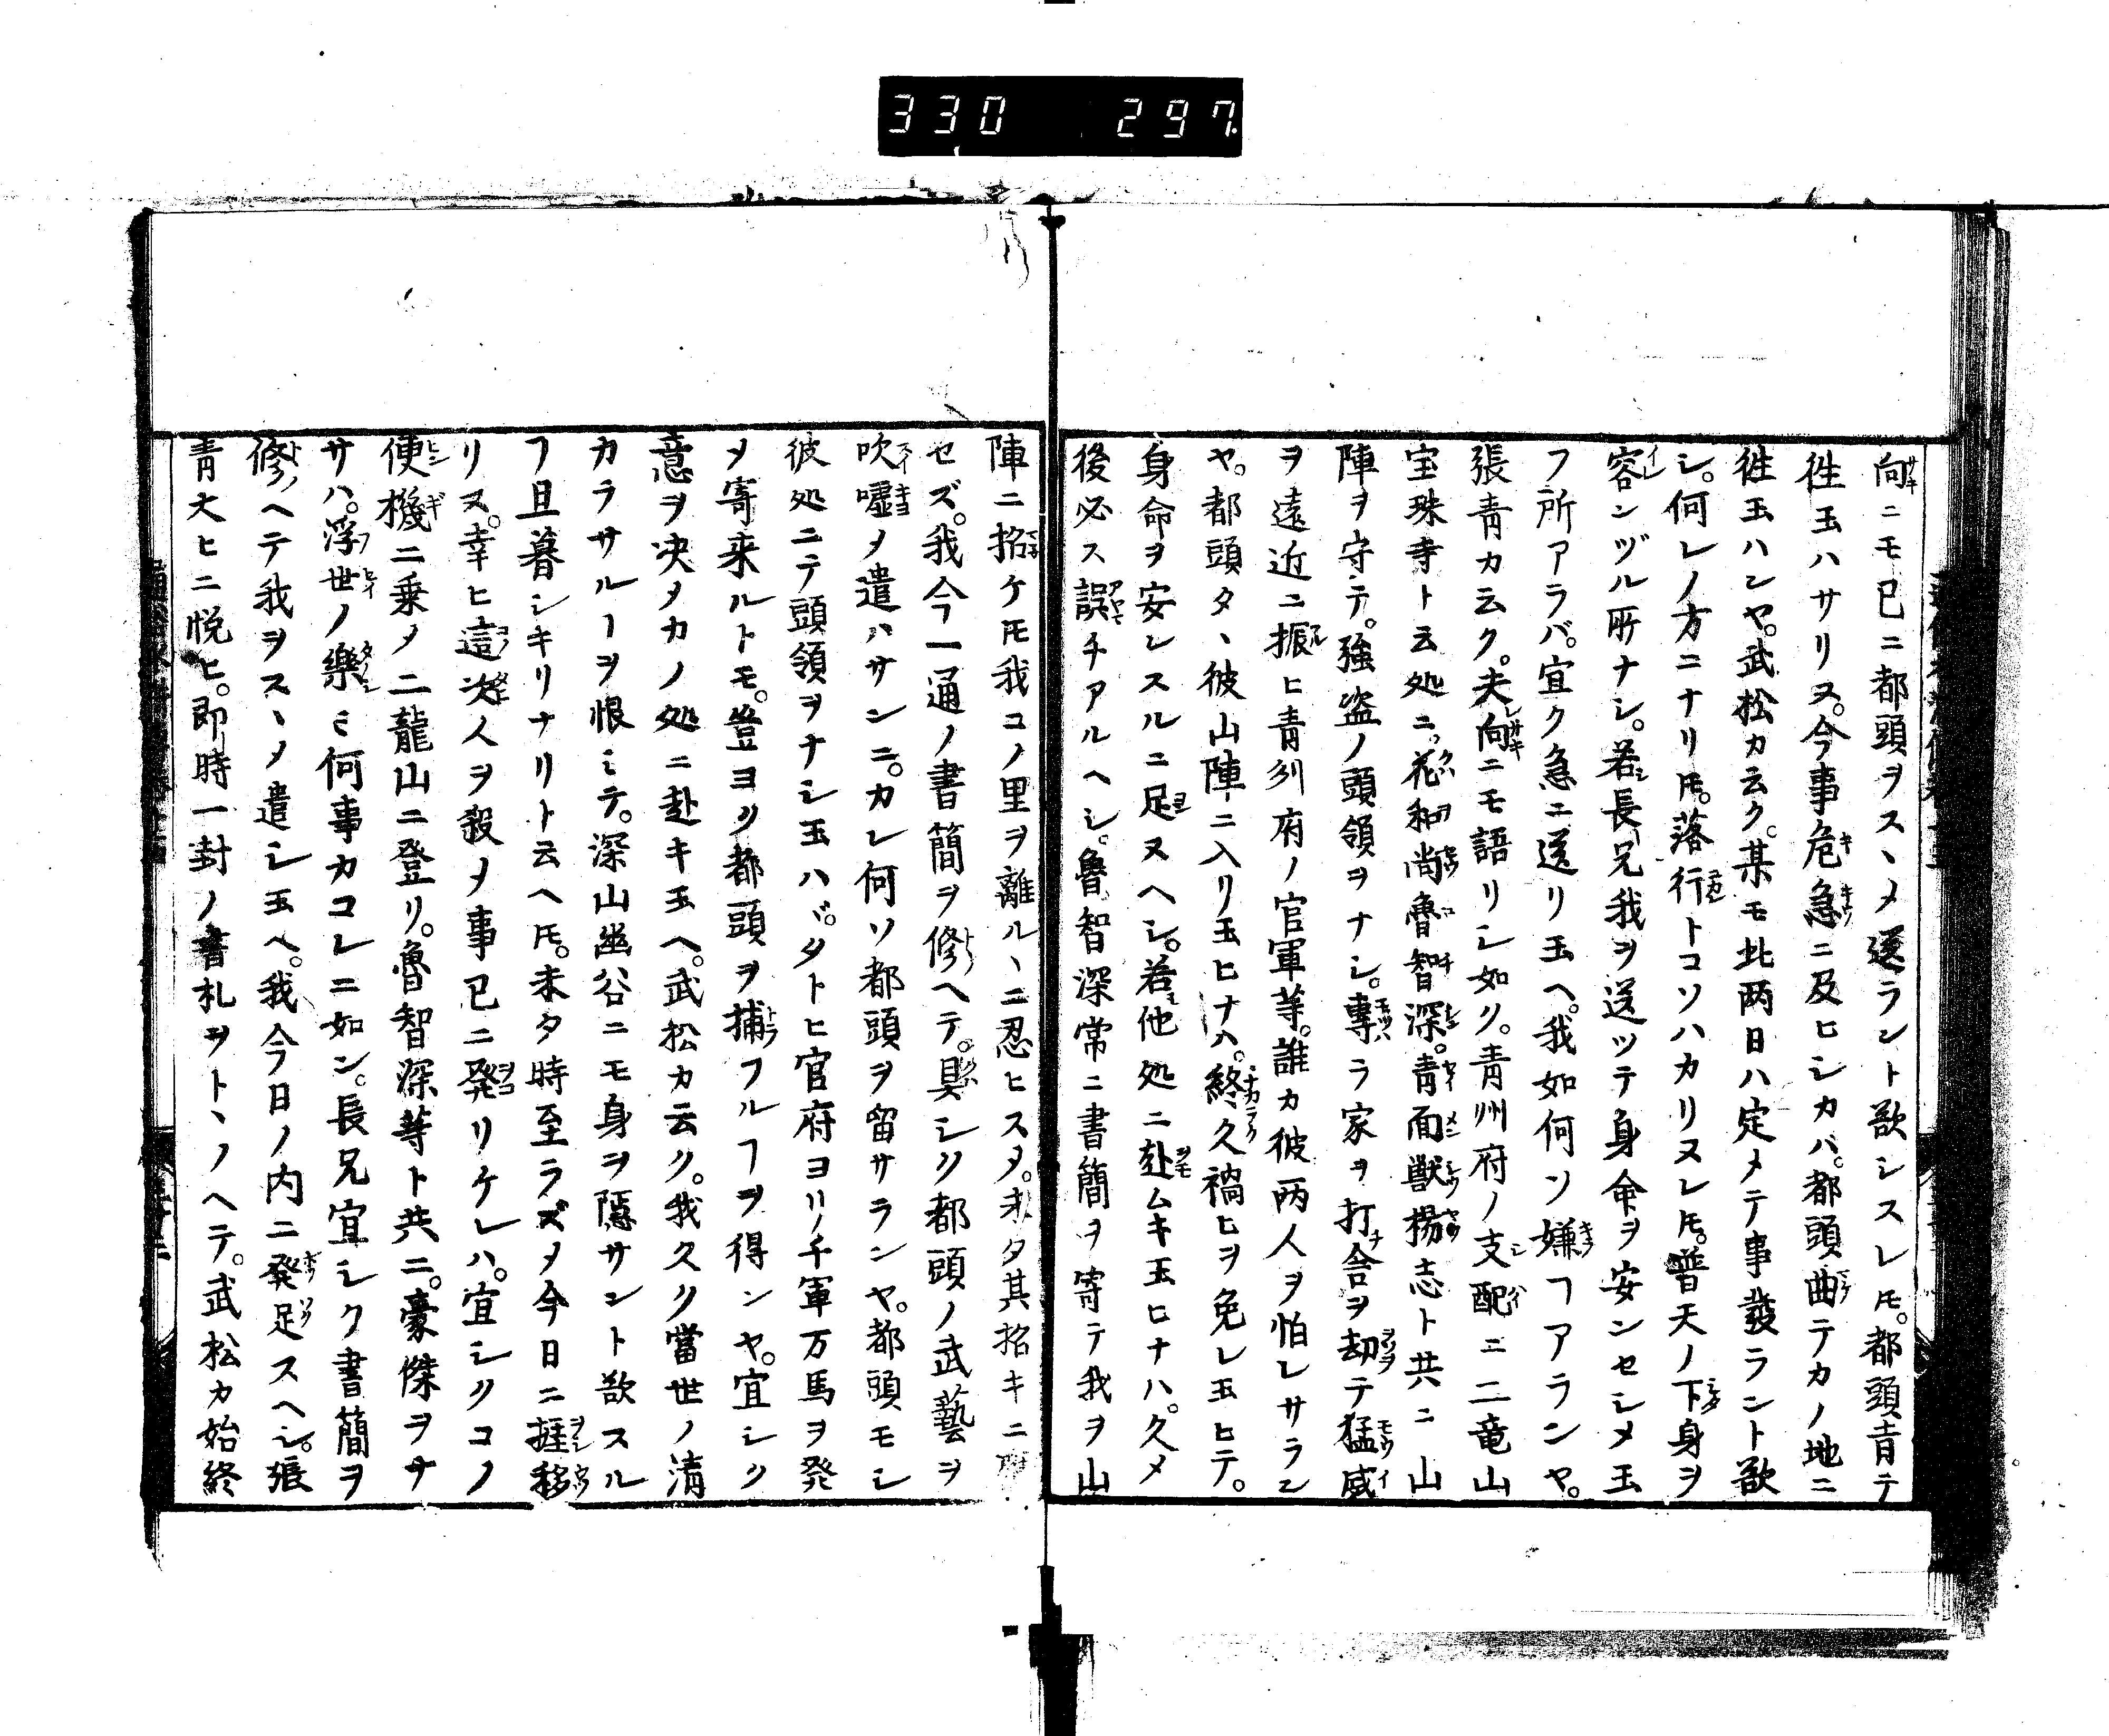 330 297
向ニモ已ニ都頭ヲスヽメ送ラント欲シスレ𪜈。都頭肯テ
徃玉ハサリヌ。今事危急ニ及ヒシカハ。都頭曲テカノ地ニ
徃玉ハンヤ。武松カ云ク。某モ此両日ハ定メテ事發ラント欲
シ。何レノ方ニナリ𪜈。落行トコソハカリヌレ𪜈。普天ノ下身ヲ
容ンヅル所ナシ。若長兄我ヲ送ツテ身命ヲ安ンセシメ玉
フ所アラバ。宜ク急ニ送リ玉ヘ。我如何ソ嫌フアランヤ。
張青カ云ク。夫向ニモ語リシ如ク。青州府ノ支配ニ二竜山
宝珠寺ト云処ニ。花和尚魯智深。青面獣楊志ト共ニ山
陣ヲ守テ。強盗ノ頭領ヲナシ。專ラ家ヲ打舎ヲ刧テ猛威
ヲ遠近ニ振ヒ青州府ノ官軍等。誰カ彼両人ヲ怕レサラン
ヤ。都頭タヽ彼山陣ニ入リ玉ヒナハ。終久禍ヒヲ免レ玉ヒテ。
身命ヲ安レスルニ足ヌヘシ。若他処ニ赴ムキ玉ヒナハ。久メ
後必ス誤チアルヘシ。魯智深常ニ書簡ヲ寄テ我ヲ山
陣ニ招ケ𪜈我コノ里ヲ離ルヽニ忍ヒスタ。未タ其招キニ應
セズ。我今一通ノ書簡ヲ修ヘテ。具シク都頭ノ武藝ヲ
吹噓メ遣ハサンニ。カレ何ソ都頭ヲ留サランヤ。都頭モシ
彼処ニテ頭領ヲナシ玉ハヾ。タトヒ官府ヨリ千軍万馬ヲ発
メ寄来ルトモ。豈ヨク都頭ヲ捕フルヿヲ得ンヤ。宜シク
意ヲ决メカノ処ニ赴キ玉ヘ。武松カ云ク。我久ク當世ノ清
カラサルヿヲ恨ミテ。深山幽谷ニモ身ヲ隱サント欲スル
フ旦暮シキリナリト云ヘ𪜈。未タ時至ラズメ今日ニ捱移
リヌ。幸ヒ這次人ヲ殺メ事已ニ発リケレハ。宜シクコノ
便機ニ乗メ二龍山ニ登リ。魯智深等ト共ニ。豪傑ヲナ
サハ。浮世ノ樂ミ何事カコレニ如ン。長兄宜シク書簡ヲ
修ヘテ我ヲスヽメ遣シ玉ヘ。我今日ノ内ニ発足スヘシ。張
青大ヒニ悦ヒ。即時一封ノ書札ヲトヽノヘテ。武松カ始終